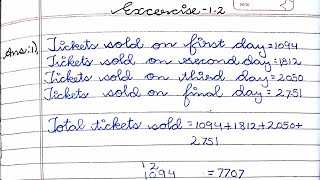 Excercise-1.2
Ans:1)
Tickets sold on first day=1094
Tickets sold on second day=1812
Tickets sold on third day=2050
Tickets sold on final day=2751
Total tickets sold=1094+1812+2050+
2751
1 2
1094 =7707